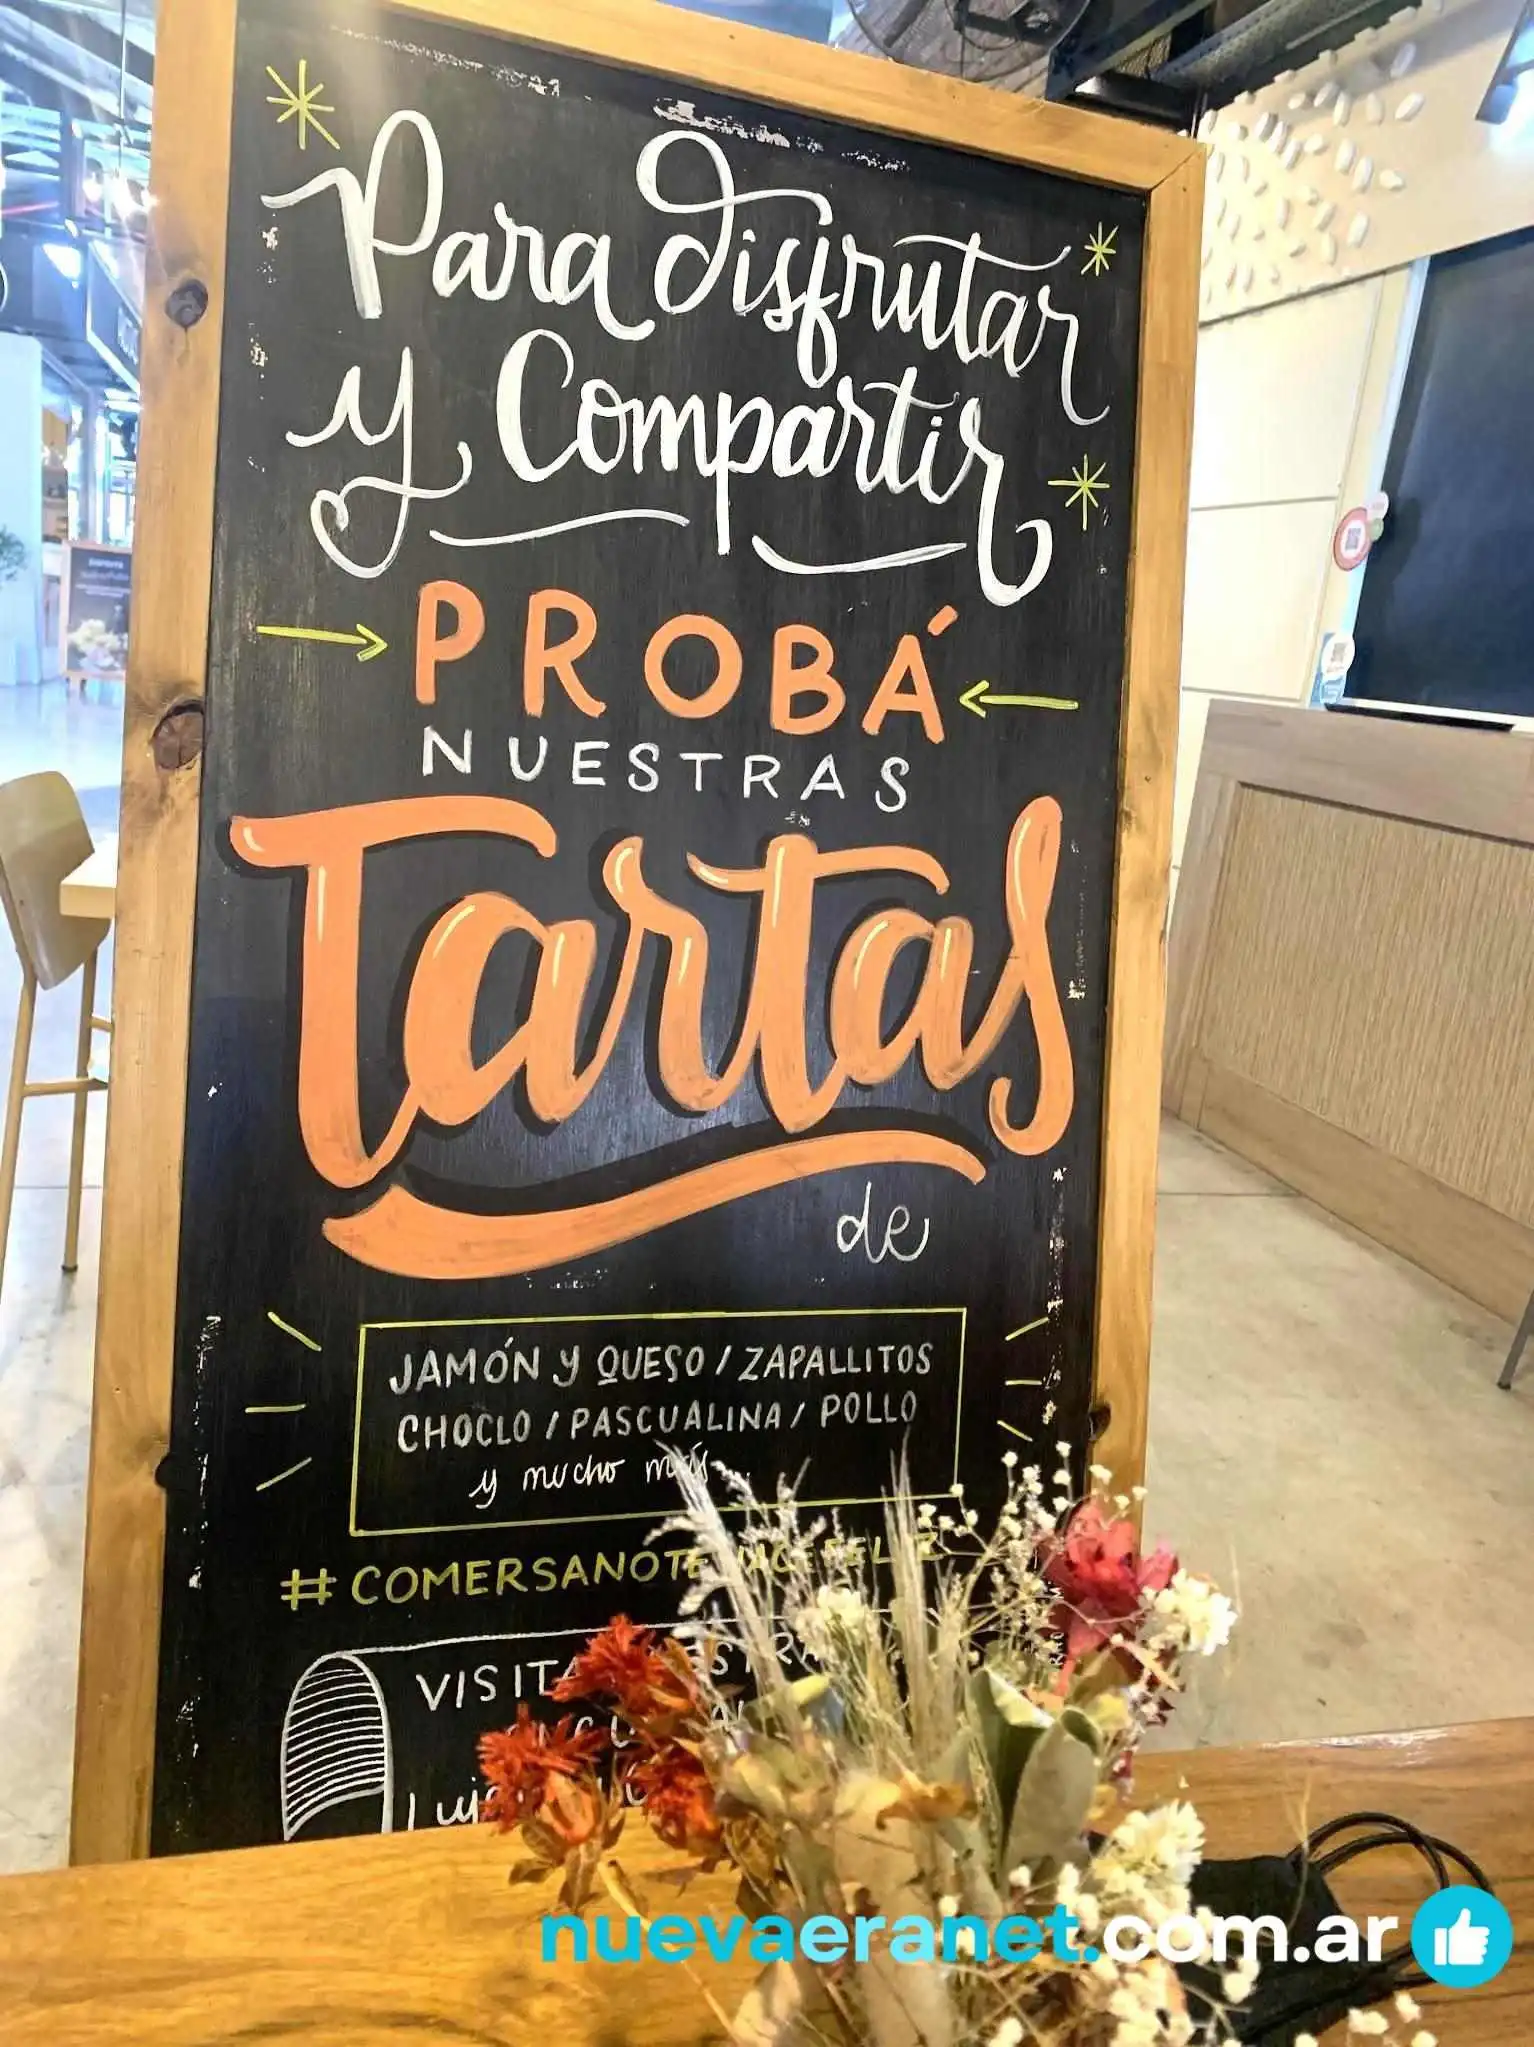 Para disfrutar
y Compartir
PROBÁ
NUESTRAS
Tartas
de
JAMÓN Y QUESO / ZAPALLITOS
CHOCLO / PASCUALINA / POLLO
y mucho más...
#COMERSANOTEHACEFELIZ
nuevaeranet.com.ar